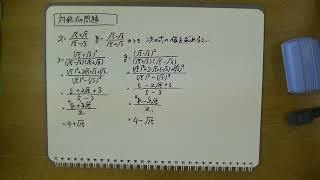 対称式の問題
x = (√5+√3)/(√5-√3) y = (√5-√3)/(√5+√3) のとき 次の式の値を求めなさい。
x = (√5+√3)²/((√5-√3)(√5+√3))
= ((√5)²+2√5×√3+(√3)²)/((√5)²-(√3)²)
= (5+2√15+3)/(5-3)
= (8+2√15)/2
= 4+√15
y = (√5-√3)²/((√5+√3)(√5-√3))
= (5-2√15+3)/(5-3)
= (8-2√15)/2
= 4-√15